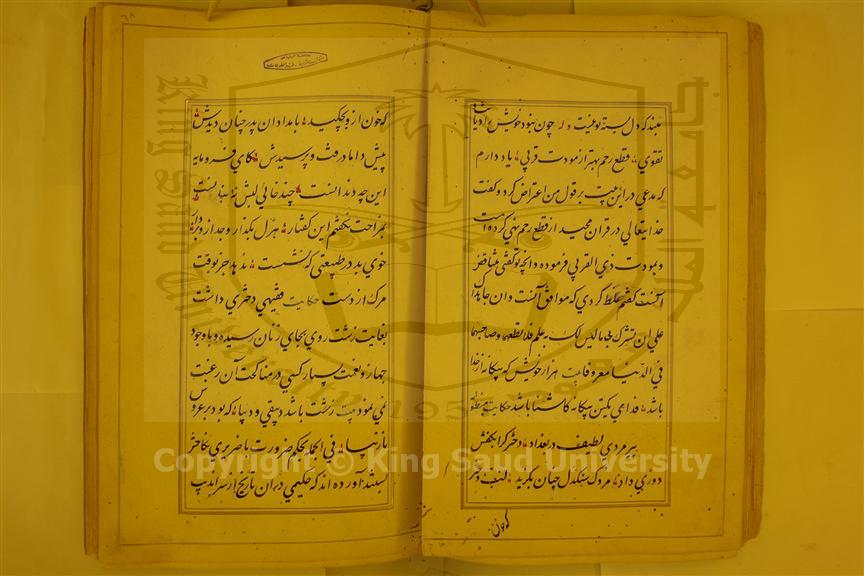 مبند که دل بسته تو نیست چون نبود خویش را دیانت
تقوی قطع رحم بهتر از مودت قربی یاد دارم
که مدعی در این بیت بر قول من اعتراض کرد و گفت
خدایتعالی در قران مجید از قطع رحم نهی کرده است
و بمودت ذی القربی فرموده و انچه تو گفتی مناقض
آنست گفتم غلط کردی که موافق آنست وان جاهداک
علی ان تشرک بی ما لیس لک به علم فلا تطعهما و صاحبهما
فی الدنیا معروفا بیت هزار خویش که بیکانه از خدا
باشد فدای یکتن بیکانه کاشنا باشد حکایت منظوم
پیرمردی لطیف در بغداد دخترکرا بکفش
دوزی داد مردک سنکدل چنان بکزید لب دختر
که خون ازو بچکید بامدادان پدر چنان دیدش
پیش داماد رفت و پرسیدش کای فرومایه
این چه دندانست چند خائی لبش نه انبانست
بمزاحت نکفتم این کفتار هزل بکذار و جد ازو بردار
خوی بد در طبیعتی که نشست ندهد جز بوقت
مرک از دست حکایت فقیهی دختری داشت
بغایت زشت روی بجای زنان رسیده و با وجود
جهاز و نعمت بسیار کسی در مناکحت آن رغبت
نمی نمود بیت زشت باشد دبیقی و دیبا که بود بر عروس
نازیبا فی الجمله بحکم ضرورت با ضریری نکاحش
ببستند آورده اند که حکیمی در ان تاریخ از سراندیب
Copyright © King Saud University